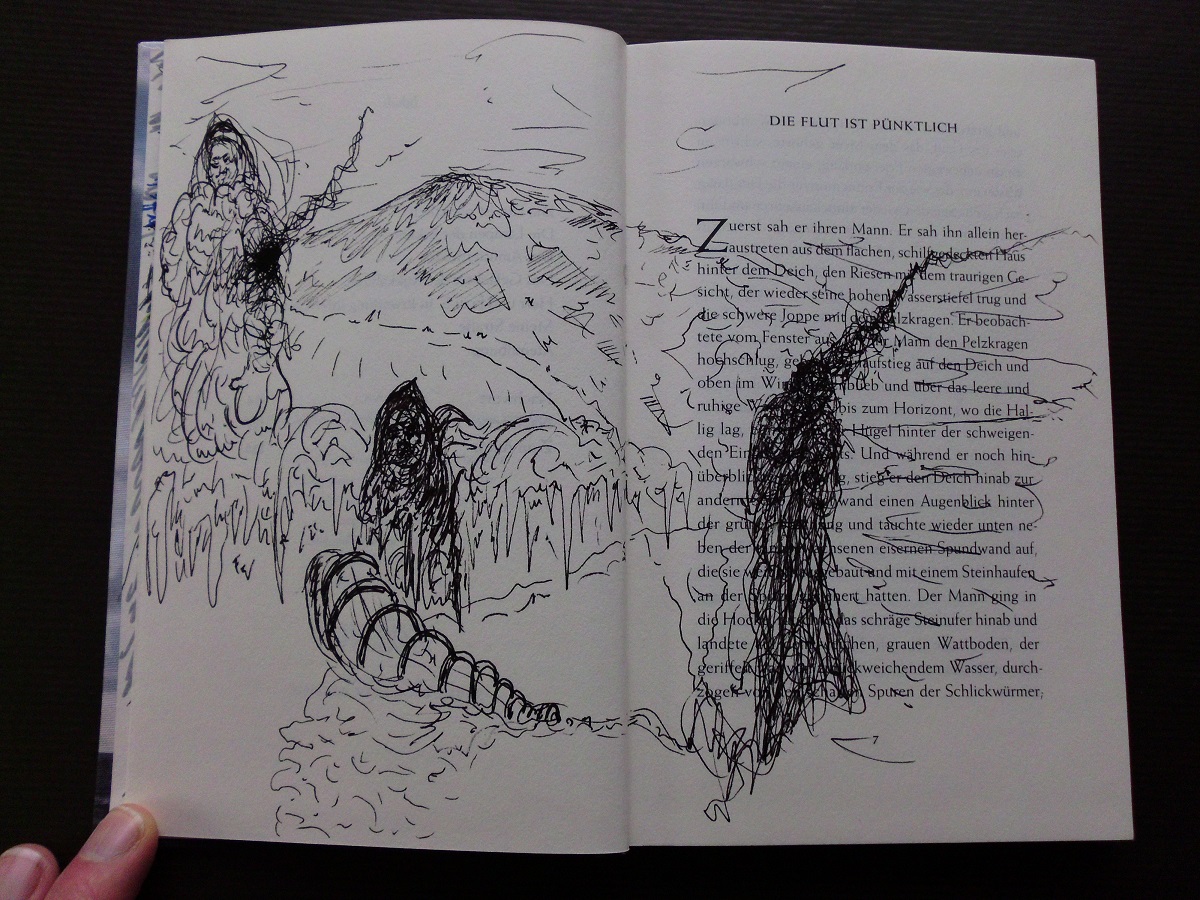 DIE FLUT IST PÜNKTLICH
Zuerst sah er ihren Mann. Er sah ihn allein her-
austreten aus dem flachen, schilfgedeckten Haus
hinter dem Deich, den Riesen mit dem traurigen Ge-
sicht, der wieder seine hohen Wasserstiefel trug und
die schwere Joppe mit dem Pelzkragen. Er beobach-
tete vom Fenster aus, Mann den Pelzkragen
hochschlug, hinaufstieg auf den Deich und
oben im blieb und über das leere und
ruhige bis zum Horizont, wo die Hal-
lig lag, Hügel hinter der schweigen-
den Und während er noch hin-
überblickte, stieg er den Deich hinab zur
andern wand einen Augenblick hinter
der grünen und tauchte wieder unten ne-
ben der eisernen Spundwand auf,
die sie gebaut und mit einem Steinhaufen
an der hatten. Der Mann ging in
die Hocke, das schräge Steinufer hinab und
landete weichen, grauen Wattboden, der
geriffelt zurückweichendem Wasser, durch-
zogen von den scharfen Spuren der Schlickwürmer,